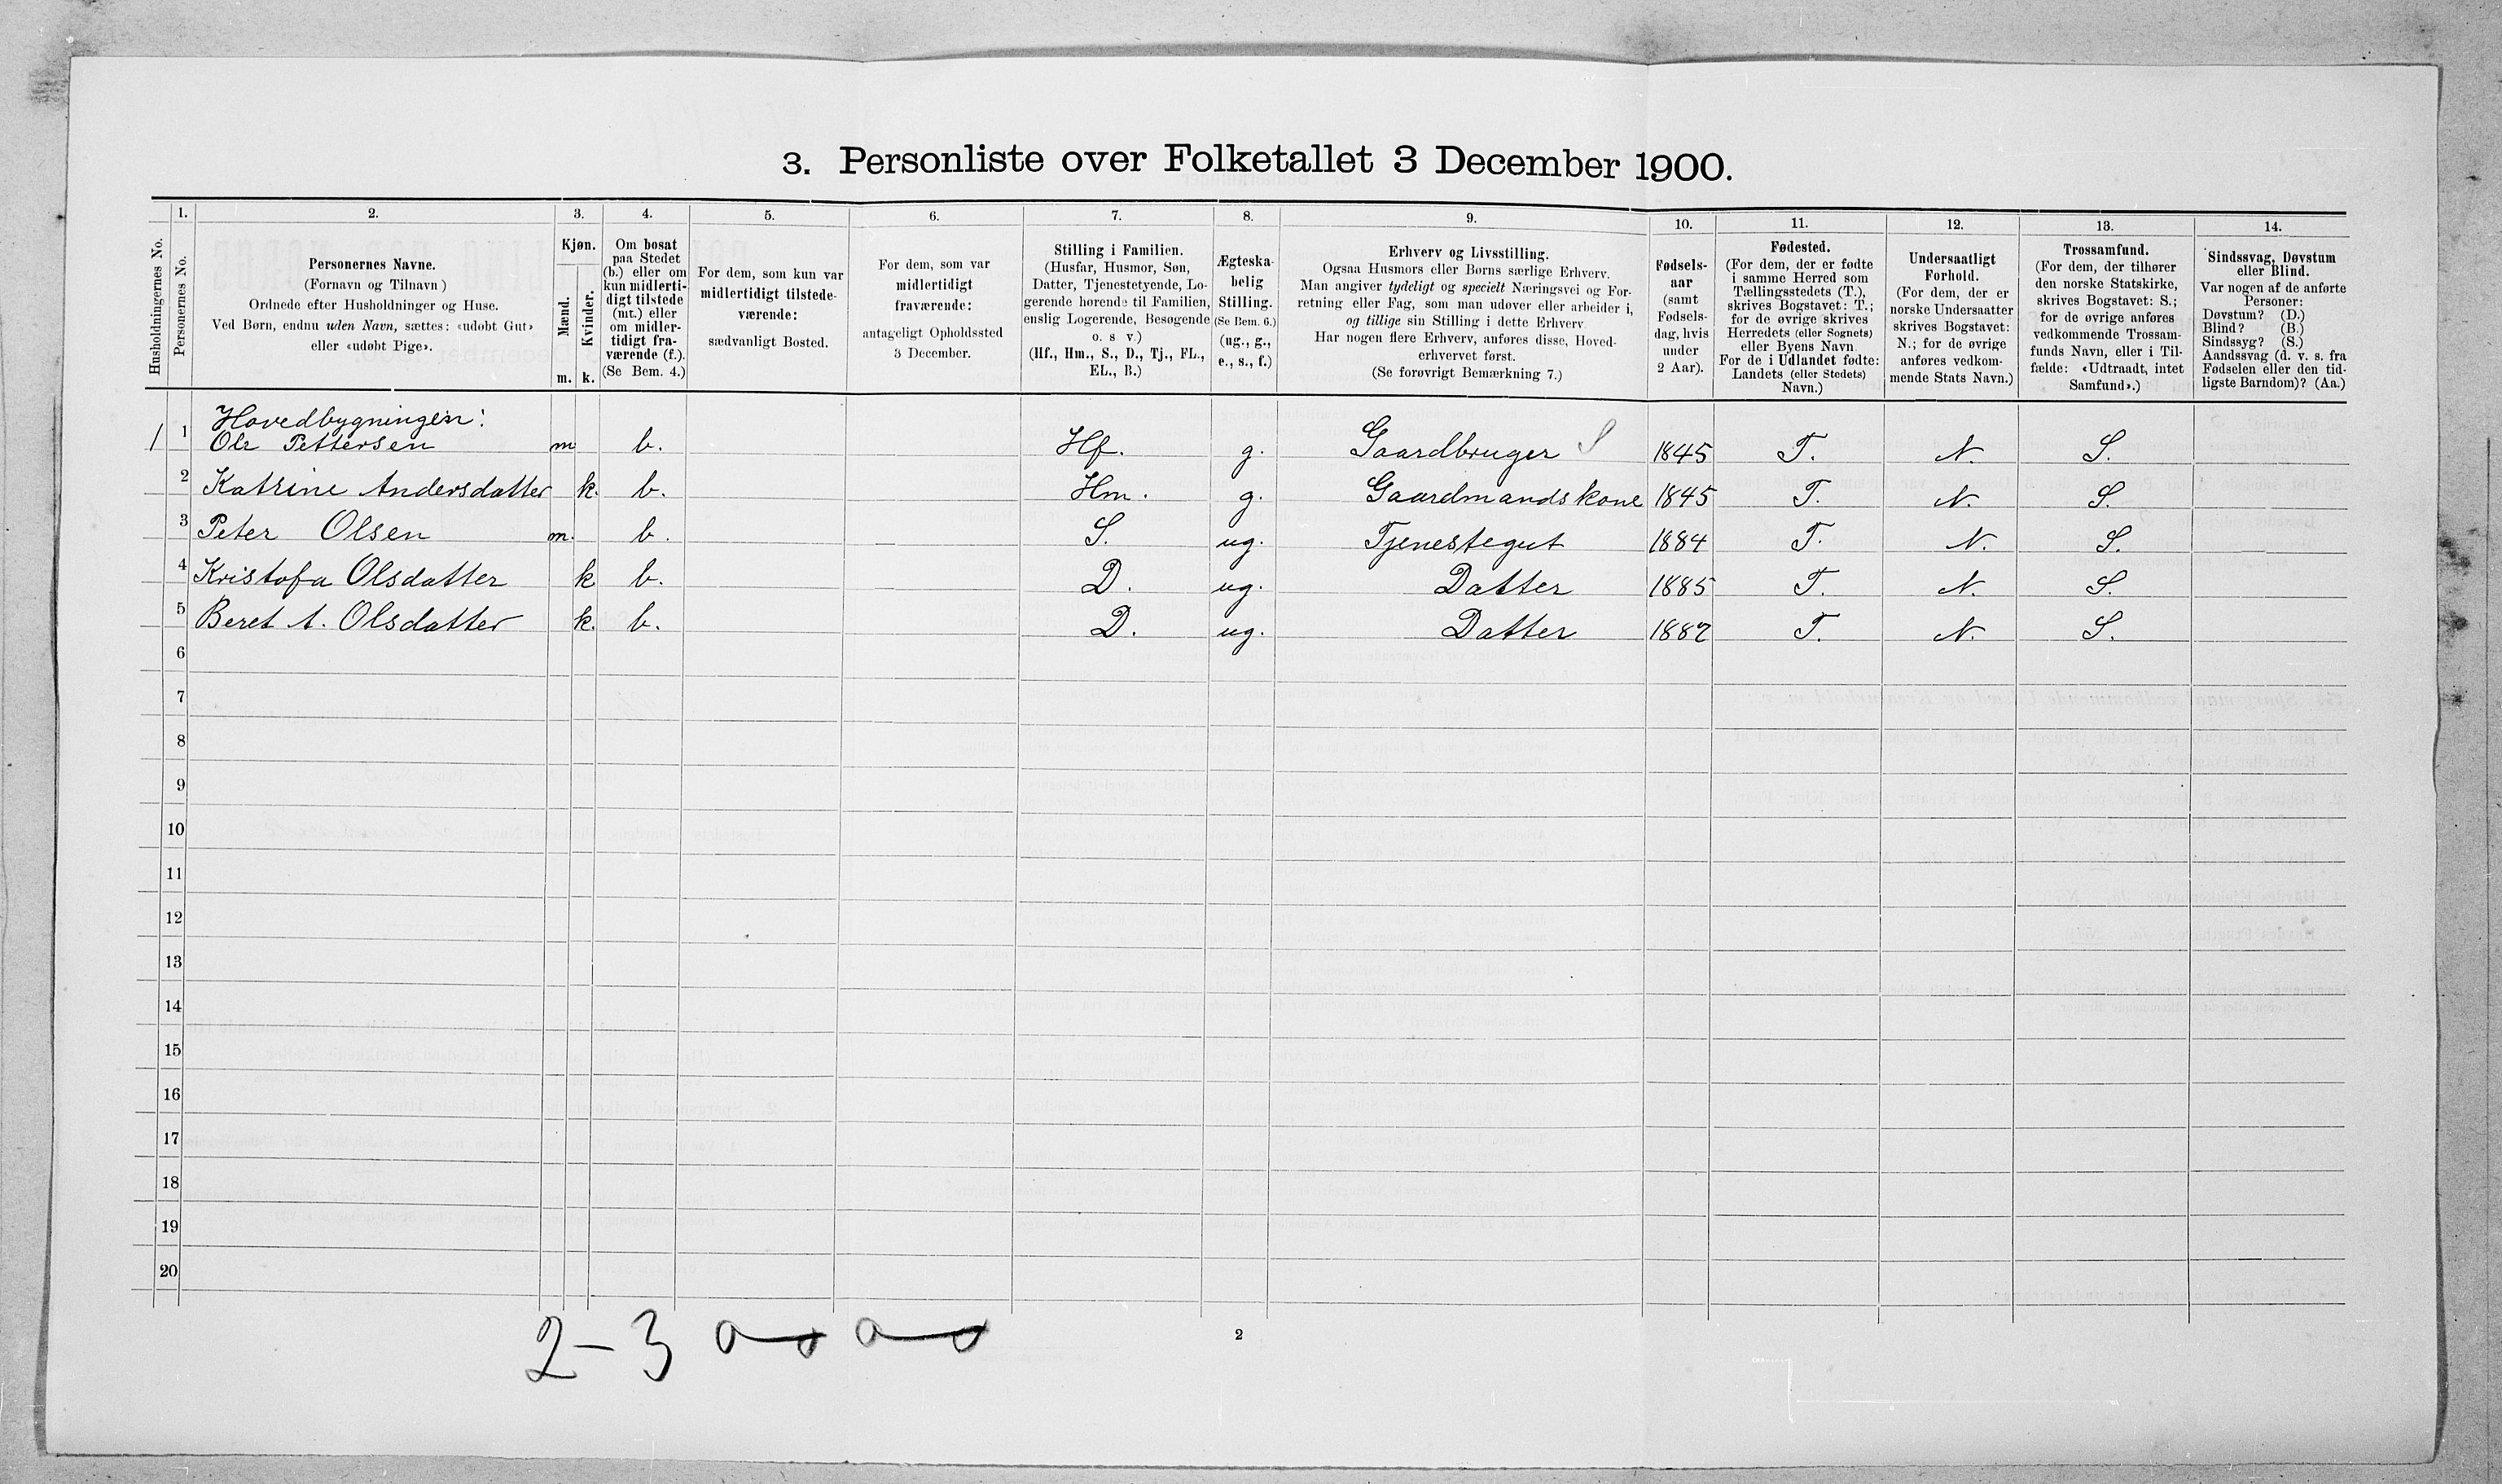 3. Personliste over Folketallet 3 December 1900.
Husholdningernes No.
1.
Personernes No.
2.
Personernes Navne.
(Fornavn og Tilnavn)
Ordnede efter Husholdninger og Huse.
Ved Børn, endnu uden Navn, sættes: «udøbt Gut»
eller «udøbt Pige».
3.
Kjøn.
Mænd.
Kvinder.
m. k.
4.
Om bosat
paa Stedet
(b.) eller om
kun midlerti-
digt tilstede
(mt.) eller
om midler-
tidigt fra-
værende (f.).
(Se Bem. 4.)
5.
For dem, som kun var
midlertidigt tilstede-
værende:
sædvanligt Bosted.
6.
For dem, som var
midlertidigt
fraværende:
antageligt Opholdssted
3 December.
7.
Stilling i Familien.
(Husfar, Husmor, Søn,
Datter, Tjenestetyende, Lo-
gerende hørende til Familien,
enslig Logerende, Besøgende
o. s v.)
(Hf., Hm., S., D., Tj., FL.,
EL., B.)
8.
Ægteska-
belig
Stilling.
(Se Bem. 6.)
(ug., g.,
e., s., f.)
9.
Erhverv og Livsstilling.
Ogsaa Husmors eller Børns særlige Erhverv.
Man angiver tydeligt og specielt Næringsvei og For-
retning eller Fag, som man udøver eller arbeider i,
og tillige sin Stilling i dette Erhverv
Har nogen flere Erhverv, anføres disse, Hoved-
erhvervet først.
(Se forøvrigt Bemærkning 7.)
10.
Fødsels-
aar
(samt
Fødsels-
dag, hvis
under
2 Aar).
11.
Fødested.
(For dem, der er fødte
i samme Herred som
Tællingsstedets (T.),
skrives Bogstavet: T.;
for de øvrige skrives
Herredets (eller Sognets)
eller Byens Navn
For de i Udlandet fødte:
Landets (eller Stedets)
Navn.)
12.
Undersaatligt
Forhold.
(For dem, der er
norske Undersaatter
skrives Bogstavet:
N.; for de øvrige
anføres vedkom-
mende Stats Navn.)
13.
Trossamfund.
(For dem, der tilhører
den norske Statskirke,
skrives Bogstavet: S.;
for de øvrige anføres
vedkommende Trossam-
funds Navn, eller i Til-
fælde: «Udtraadt, intet
Samfund».)
14.
Sindssvag, Døvstum
eller Blind.
Var nogen af de anførte
Personer:
Døvstum? (D.)
Blind? (B.)
Sindssyg? (S.)
Aandssvag (d. v. s. fra
Fødselen eller den tid-
ligste Barndom)? (Aa.)
Hovedbygningen:
1 1 Ole Pettersen m b. Hf. g. Gaardbruger S 1845 T. N. S.
2 Katrine Andersdatter k. b. Hm. g. Gaardmandskone 1845 T. N. S.
3 Peter Olsen m. b. S. ug. Tjenestegut 1884 T. N. S.
4 Kristofa Olsdatter k b. D. ug. Datter 1885 T. N. S.
5 Beret A. Olsdatter k. b. D. ug. Datter 1887 T. N. S.
6
7
8
9
10
11
12
13
14
15
16
17
18
19
20
2 - 3 0 0 0 0
2